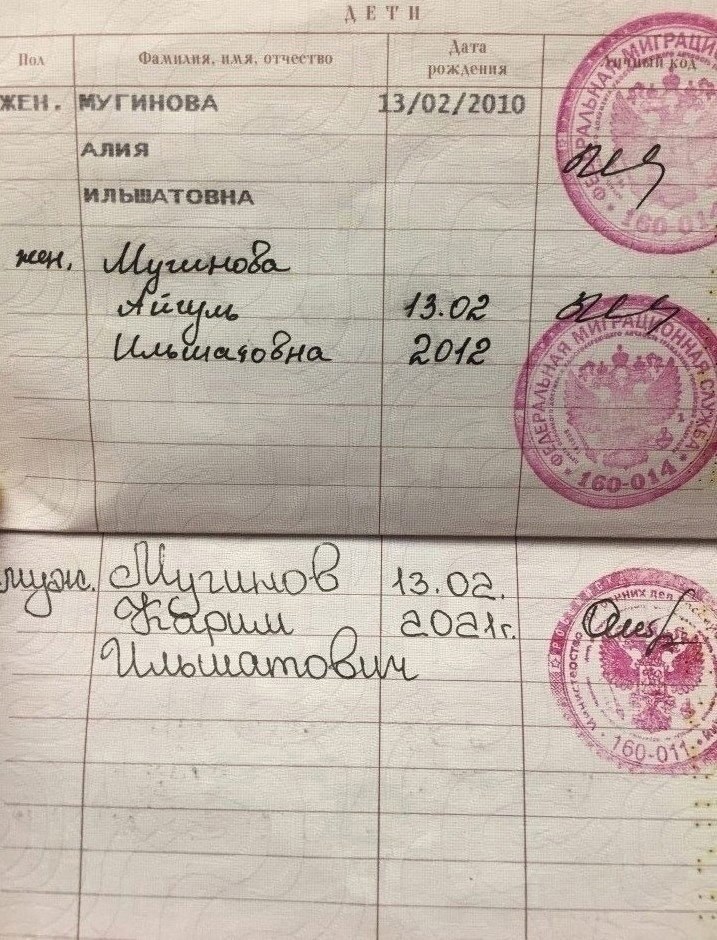 ДЕТИ
Пол Фамилия, имя, отчество Дата рождения Личный код
ЖЕН. МУГИНОВА 13/02/2010
АЛИЯ
ИЛЬШАТОВНА
жен. Мугинова
Айгуль 13.02
Ильшатовна 2012
ФЕДЕРАЛЬНАЯ МИГРАЦИОННАЯ
160-014
ФЕДЕРАЛЬНАЯ МИГРАЦИОННАЯ СЛУЖБА
160-014
муж. Мугинов 13.02.
Карим 2021г.
Ильшатович
Министерство внутренних дел
160-011